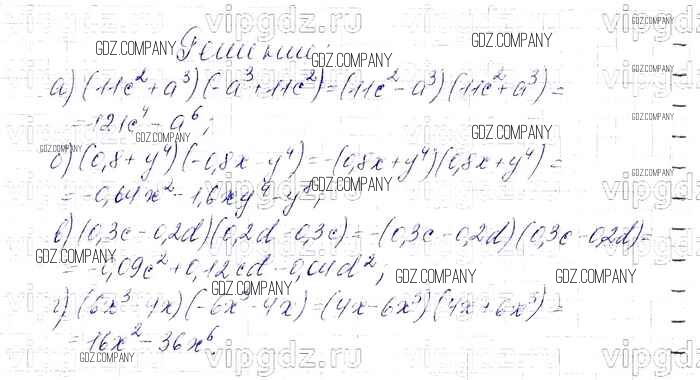 Решение:
а) (11c² + a³)(-a³ + 11c²) = (11c² - a³)(11c² + a³) =
= 121c⁴ - a⁶;
б) (0,8 + y⁴)(-0,8x - y⁴) = -(0,8x + y⁴)(0,8x + y⁴) =
= -0,64x² - 1,6xy⁴ - y⁸;
в) (0,3c - 0,2d)(0,2d - 0,3c) = -(0,3c - 0,2d)(0,3c - 0,2d) =
= -0,09c² + 0,12cd - 0,04d²;
г) (6x³ - 4x)(-6x³ - 4x) = (4x - 6x³)(4x + 6x³) =
= 16x² - 36x⁶.